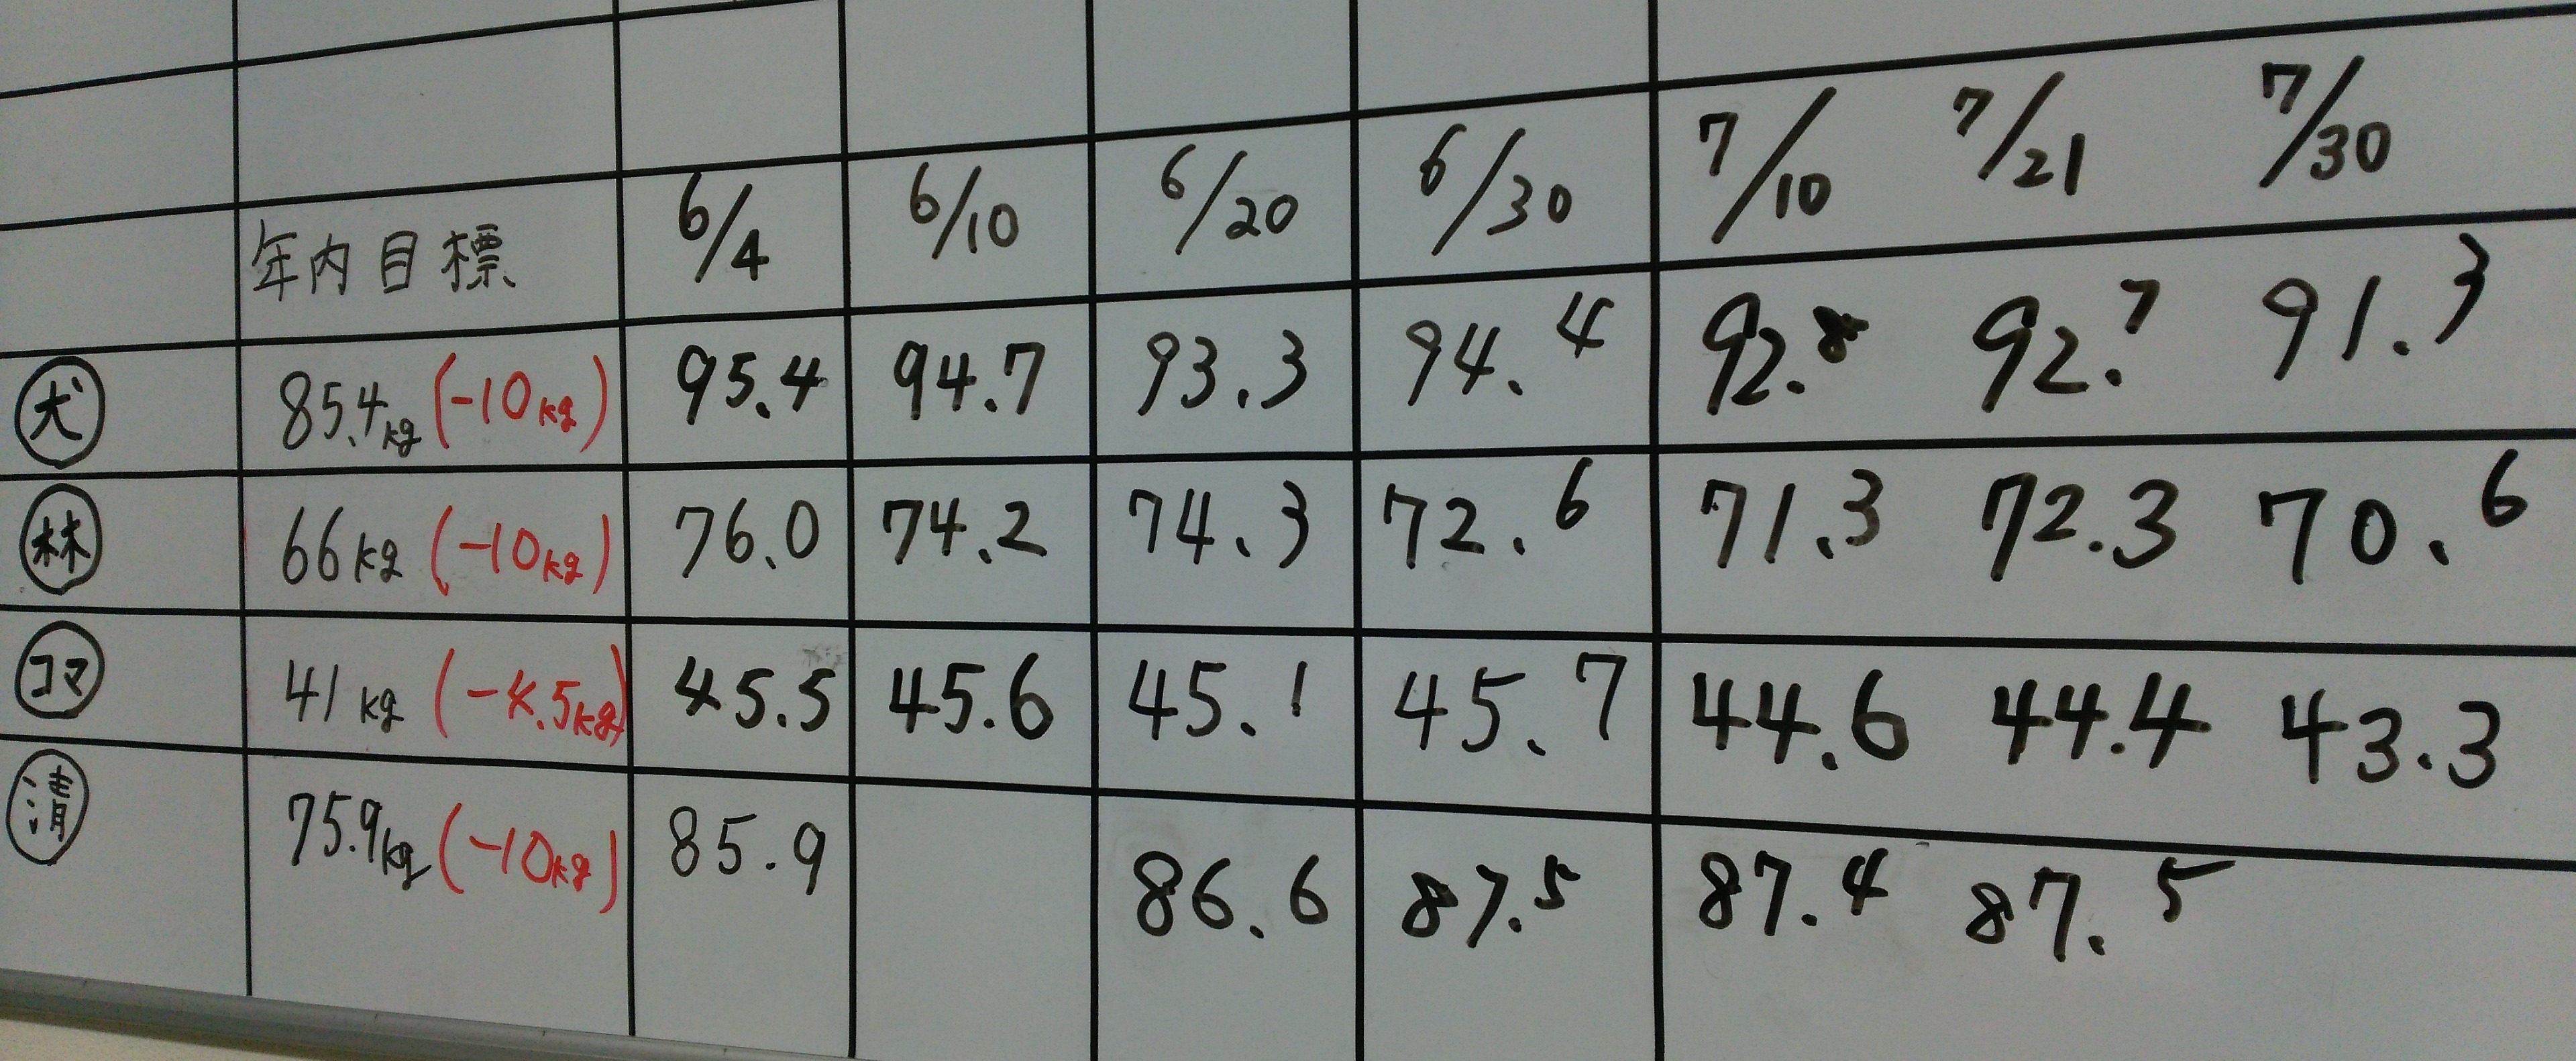 年内目標 6/4 6/10 6/20 6/30 7/10 7/21 7/30
犬 85.4kg (-10kg) 95.4 94.7 93.3 94.4 92.8 92.7 91.3
林 66kg (-10kg) 76.0 74.2 74.3 72.6 71.3 72.3 70.6
コマ 41kg (-4.5kg) 45.5 45.6 45.1 45.7 44.6 44.4 43.3
清 75.9kg (-10kg) 85.9 86.6 87.5 87.4 87.5